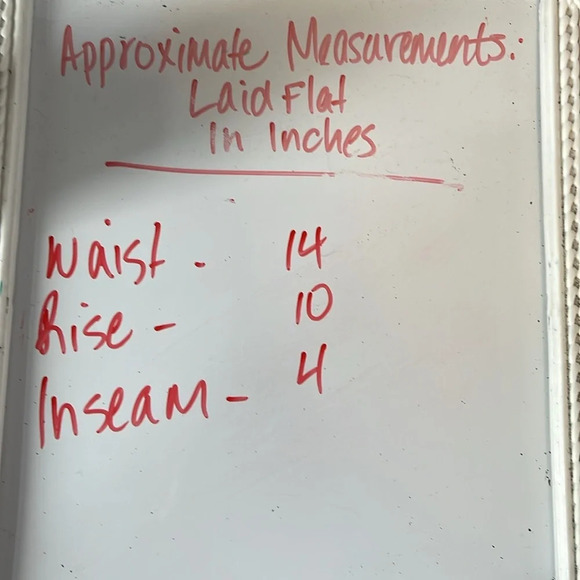 Approximate Measurements:
Laid Flat
In Inches
Waist - 14
Rise - 10
Inseam - 4